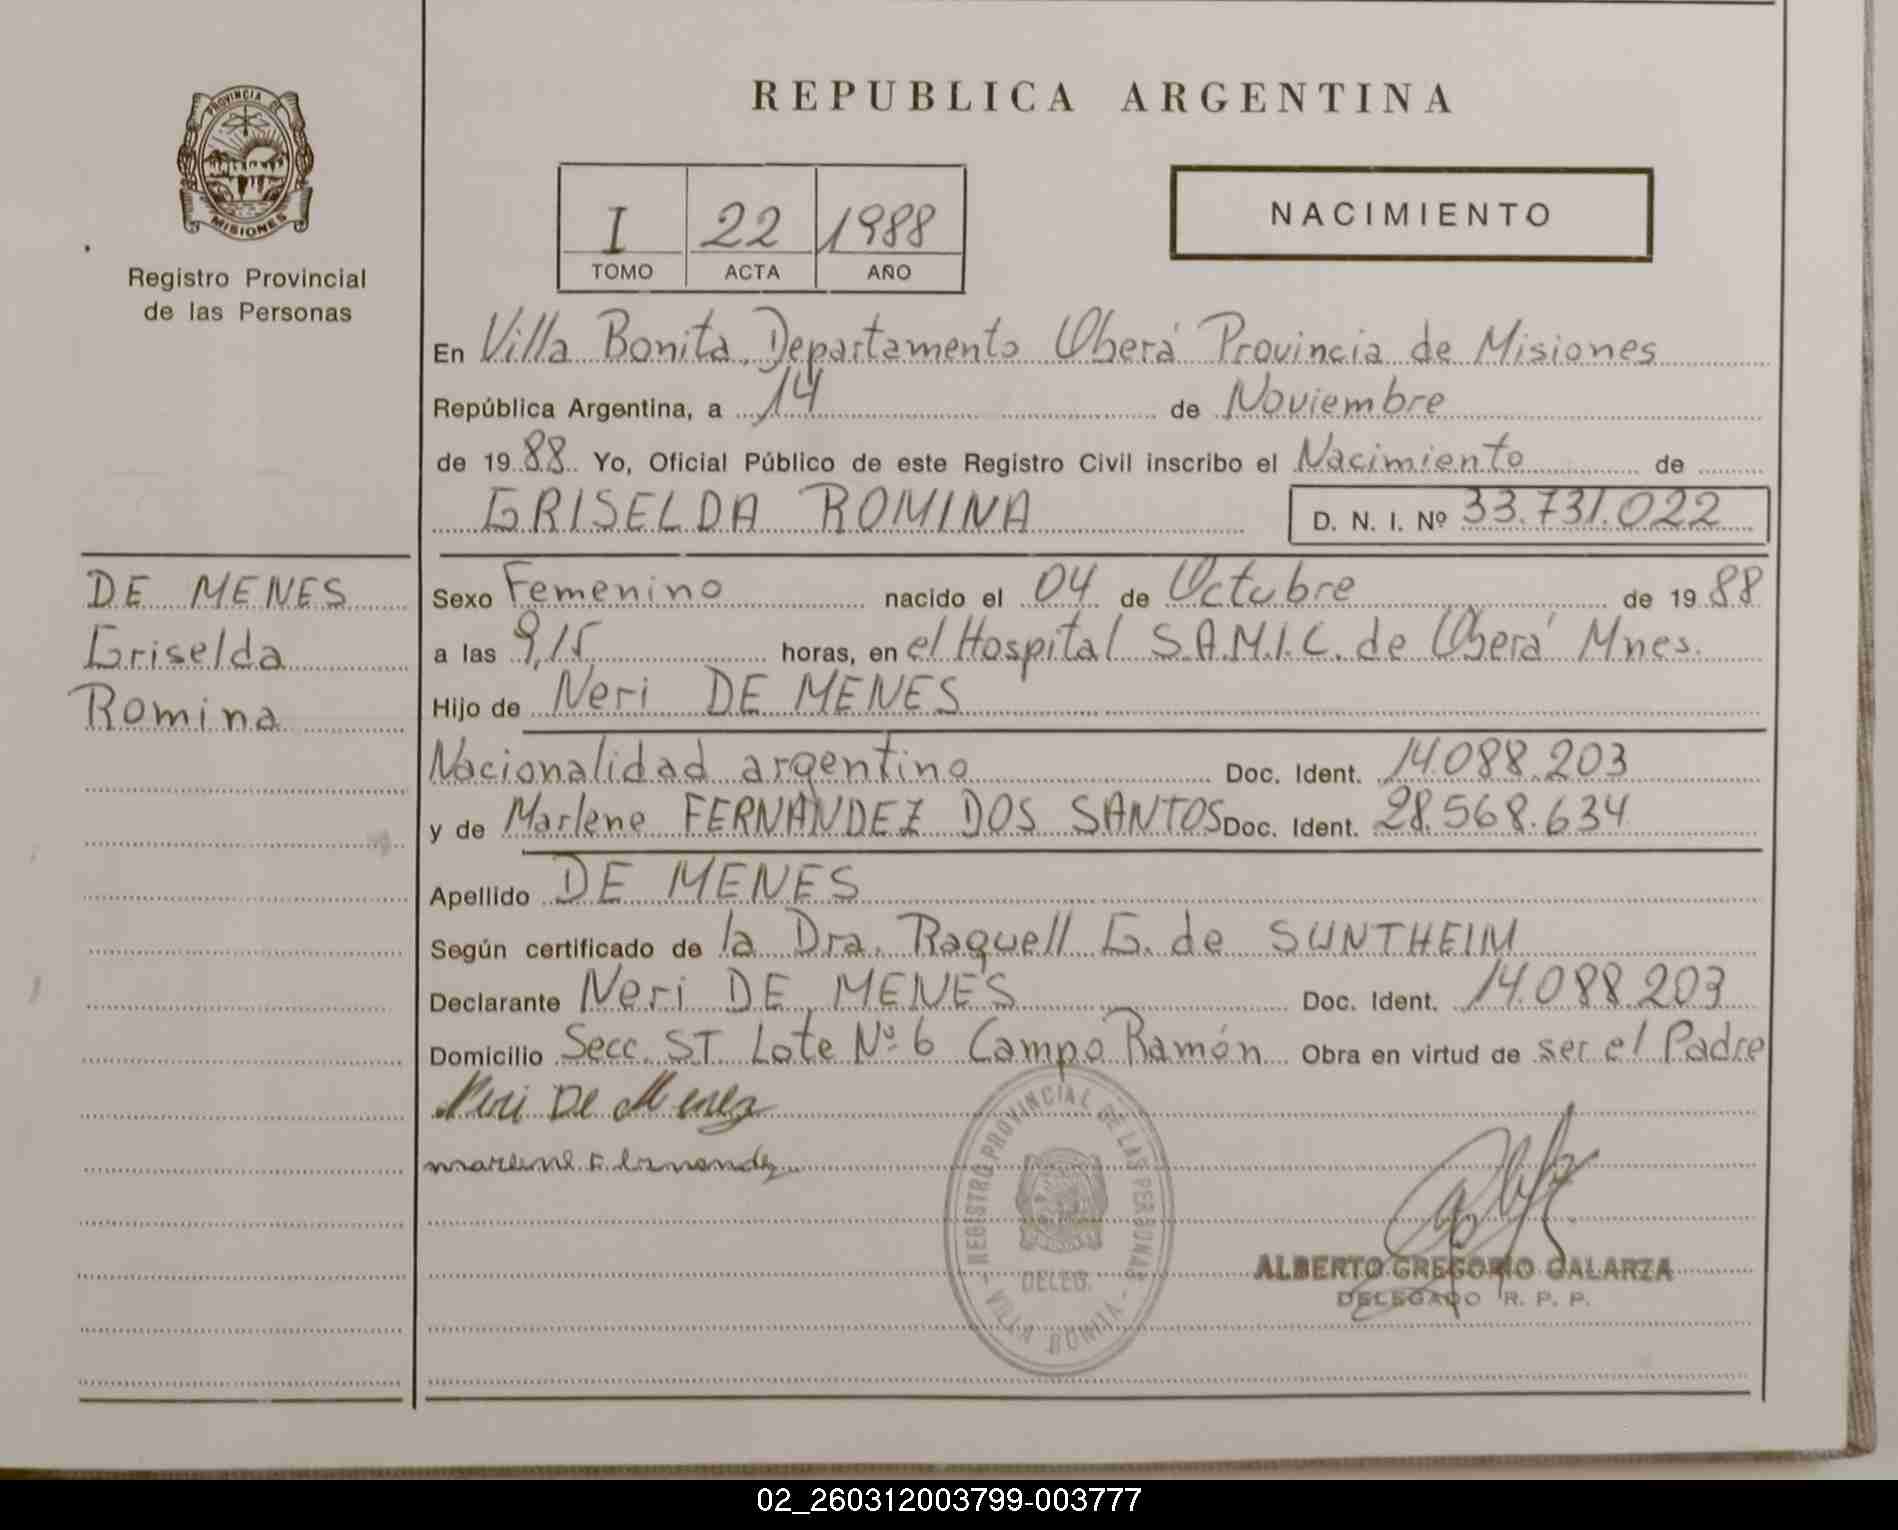 REPUBLICA ARGENTINA
PROVINCIA DE
MISIONES
Registro Provincial
de las Personas
I 22 1988
TOMO ACTA AÑO
NACIMIENTO
En Villa Bonita, Departamento Oberá Provincia de Misiones
República Argentina, a 14 de Noviembre
de 1988 Yo, Oficial Público de este Registro Civil inscribo el Nacimiento de
GRISELDA ROMINA D. N. I. Nº 33.731.022
DE MENES
Griselda
Romina
Sexo Femenino nacido el 04 de Octubre de 1988
a las 9,15 horas, en el Hospital S.A.M.I.C. de Oberá Mnes.
Hijo de Neri DE MENES
Nacionalidad argentino Doc. Ident. 14.088.203
y de Marlene FERNANDEZ DOS SANTOS Doc. Ident. 28.568.634
Apellido DE MENES
Según certificado de la Dra. Raquell G. de SUNTHEIM
Declarante Neri DE MENES Doc. Ident. 14.088.203
Domicilio Secc. ST. Lote Nº 6 Campo Ramón Obra en virtud de ser el Padre
Neri De Menez
marlene Fernandez
REGISTRO PROVINCIAL DE LAS PERSONAS
DELEG.
VILLA BONITA
ALBERTO GREGORIO GALARZA
DELEGADO R. P. P.
02_260312003799-003777